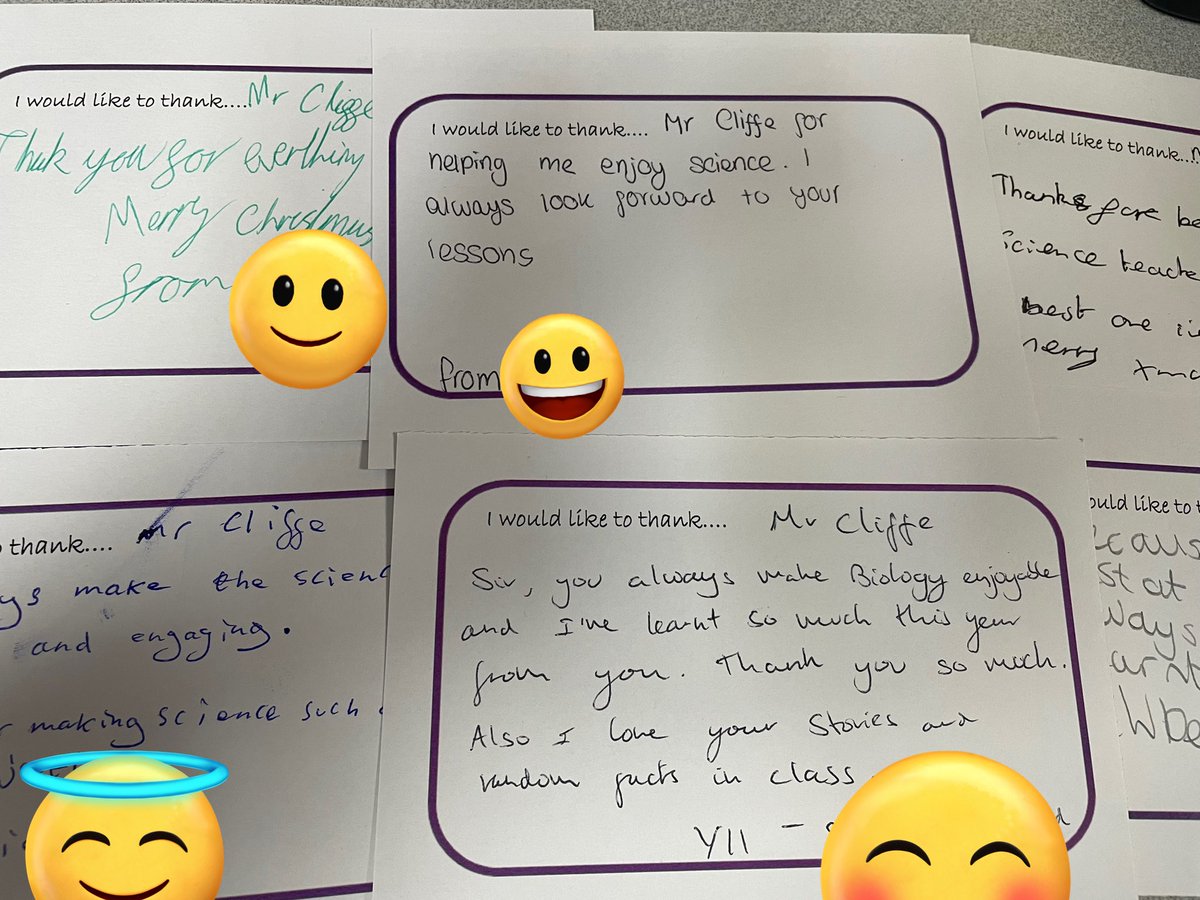 I would like to thank.... Mr Cliffe
Thak you for everthing
Merry Christmus
from
I would like to thank.... Mr Cliffe for
helping me enjoy science. I
always look forward to your
lessons
from
I would like to thank...
Thanks for be
science teache
best one
merry xma
thank.... Mr Cliffe
ys make the scienc
and engaging.
making science such
I would like to thank.... Mr Cliffe
Sir, you always make Biology enjoyable
and I've learnt so much this year
from you. Thank you so much.
Also I love your stories and
random facts in class.
Y11 -
ould like to
caus
st at
ways
arnt